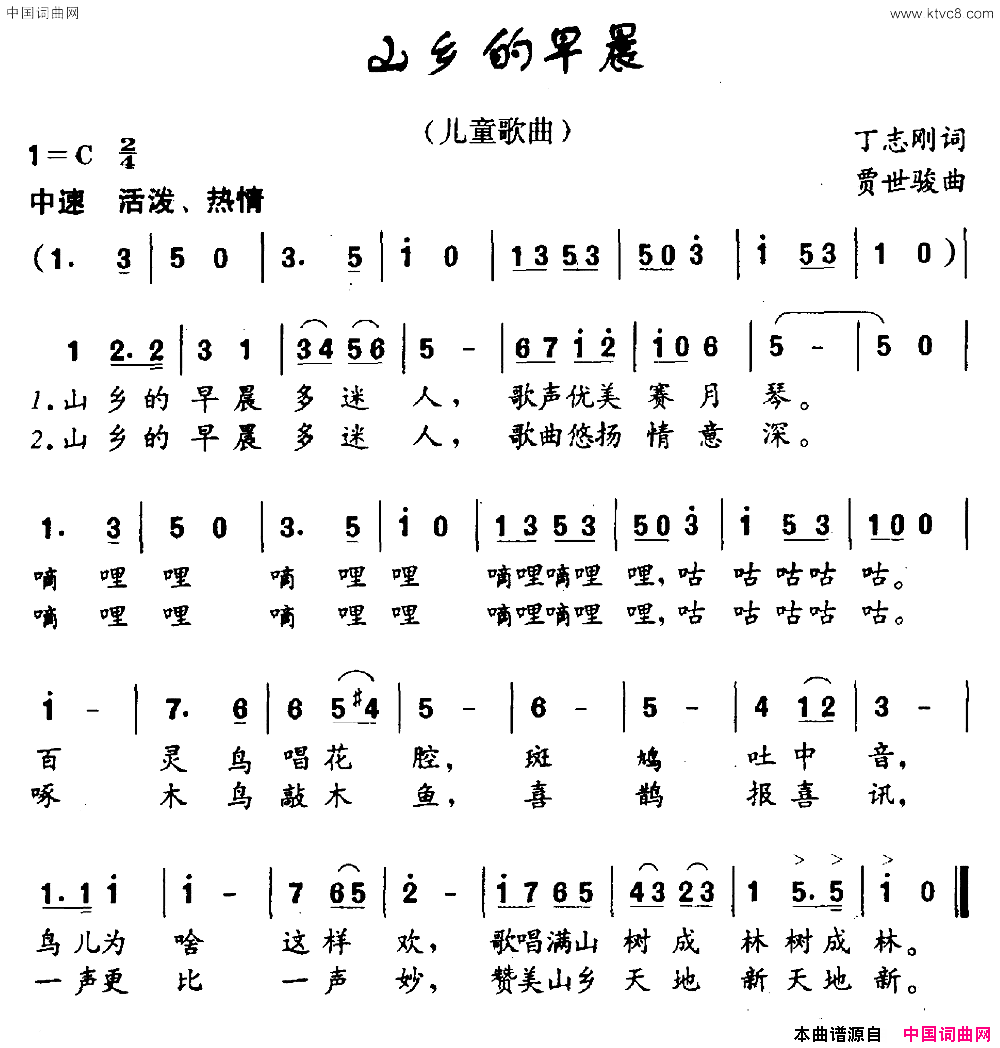 中国词曲网 www.ktvc8.com
山乡的早晨
（儿童歌曲）
1=C 2/4
丁志刚词
中速 活泼、热情
贾世骏曲
(1. 3 | 5 0 | 3. 5 | i 0 | 1353 | 503 | i 53 | 1 0 )|
1 2.2 | 3 1 | 34 56 | 5 - | 67 i2 | i06 | 5 - | 5 0 |
1.山乡的早晨多迷人，歌声优美赛月琴。
2.山乡的早晨多迷人，歌曲悠扬情意深。
1. 3 | 5 0 | 3. 5 | i 0 | 1353 | 503 | i 53 | 100 |
嘀哩哩 嘀哩哩 嘀哩嘀哩哩，咕咕咕咕咕。
嘀哩哩 嘀哩哩 嘀哩嘀哩哩，咕咕咕咕咕。
i - | 7. 6 | 6 5#4 | 5 - | 6 - | 5 - | 4 12 | 3 - |
百灵鸟唱花腔，斑鸠吐中音，
啄木鸟敲木鱼，喜鹊报喜讯，
1.1 i | i - | 7 65 | 2 - | i765 | 43 23 | 1 5.5 | i 0
鸟儿为啥这样欢，歌唱满山树成林树成林。
一声更比一声妙，赞美山乡天地新天地新。
本曲谱源自 中国词曲网